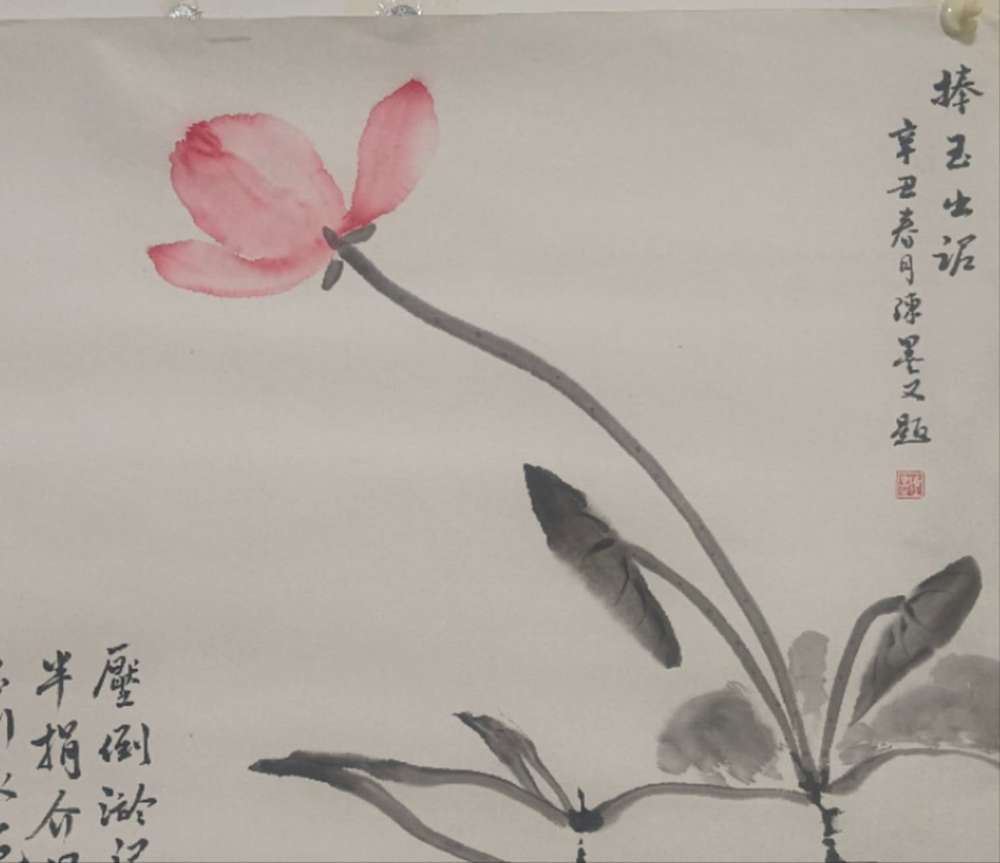 捧玉出泥
辛丑春月陳墨又題
壓倒淤泥
半捐介